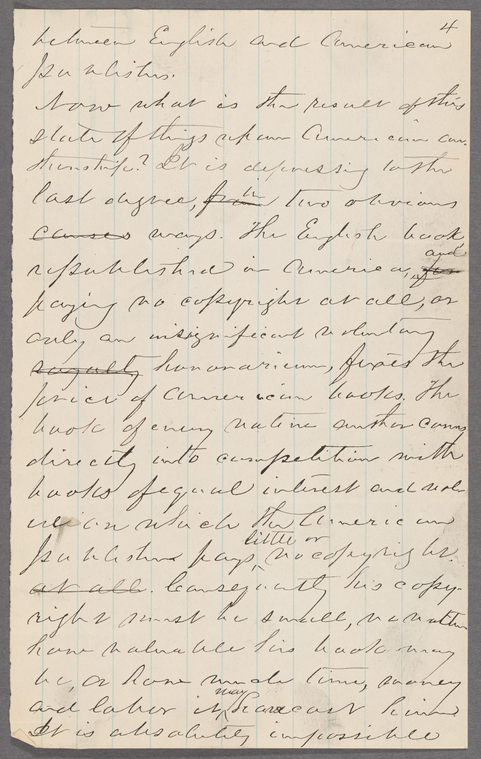 4
between English and American
Publishers.
Now what is the result of this
state of things upon American au-
thorship? It is depressing to the
last degree, from in two obvious
causes ways. The English book,
republished in America, and
paying no copyright at all, or
only an insignificant voluntary
royalty honorarium, fixes the
price of American books. The
book of every native author comes
directly into competition with
books of equal interest and val-
ue on which the American
little or
Publisher pays no copyright.
at all. Consequently his copy-
right must be small, no matter
how valuable his book may
be, or how much time, money
and labor it may have cost him.
It is absolutely impossible